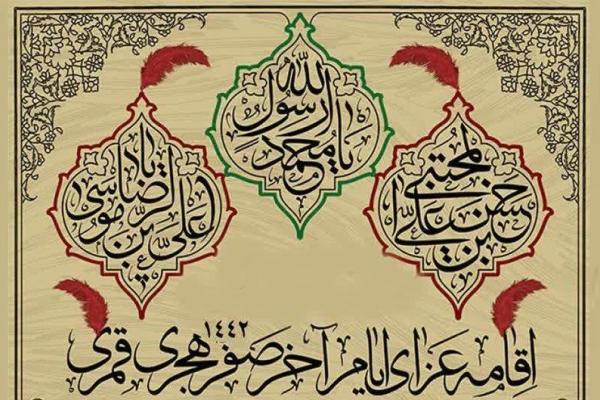 یا محمد یا رسول الله
حسن بن علی المجتبی
یا علی بن موسی الرضا
اِقامه عزای ایام آخر صفر ۱۴۴۲ هجری قمری